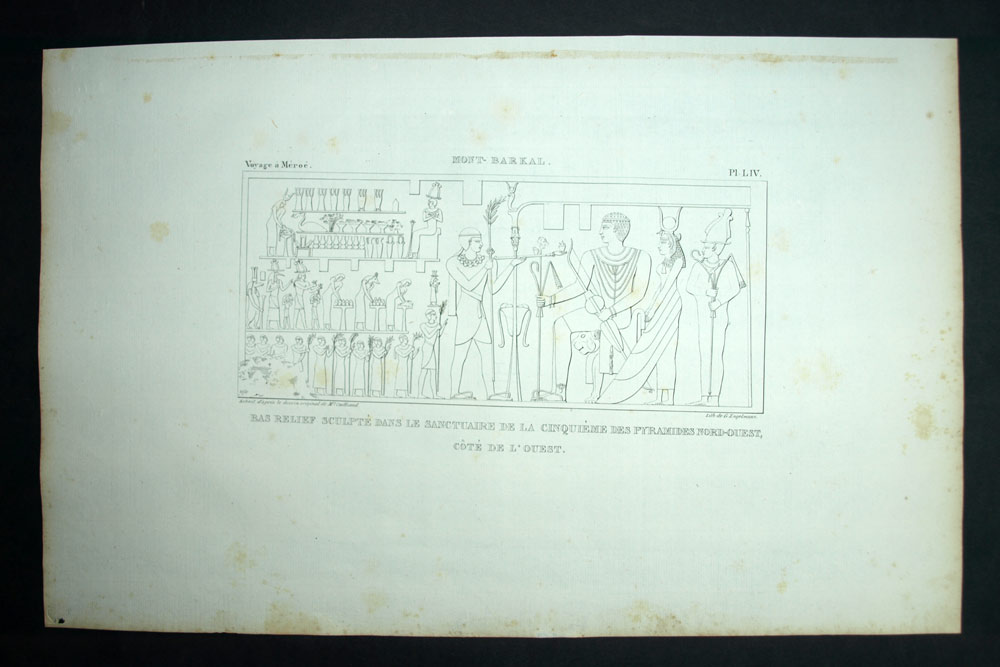 Voyage à Méroé.
MONT-BARKAL.
Pl. LIV.
Lith. de G. Engelmann.
BAS RELIEF SCULPTÉ DANS LE SANCTUAIRE DE LA CINQUIÈME DES PYRAMIDES NORD-OUEST,
CÔTÉ DE L'OUEST.